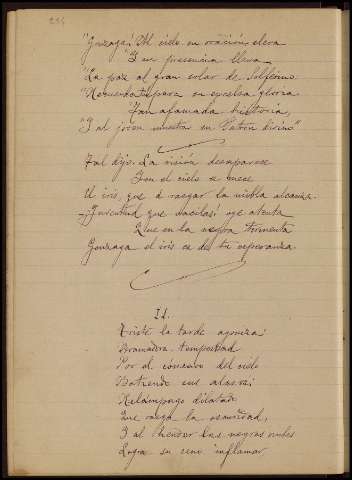 234
"Gonzaga: Al cielo su oración eleva
"I su presencia lleva
"La paz al gran solar de Solferino:
"Recuerda su excelsa gloria
"Tan afamada historia,
"I al joven muestra su Patrón divino"
Tal dijo. La visión desaparece
I en el cielo se mece
Un iris, que á rasgar la niebla alcanza.
¡Juventud que vacilas! oye atenta
Que en la negra tormenta
Gonzaga el iris es de tu esperanza.
II.
Triste la tarde agoniza:
Bramadora tempestad
Por el corazón del cielo
Batiendo sus alas va;
Relámpago dilatado
Que rasga la oscuridad,
I al hender las negras nubes
Logra su seno inflamar